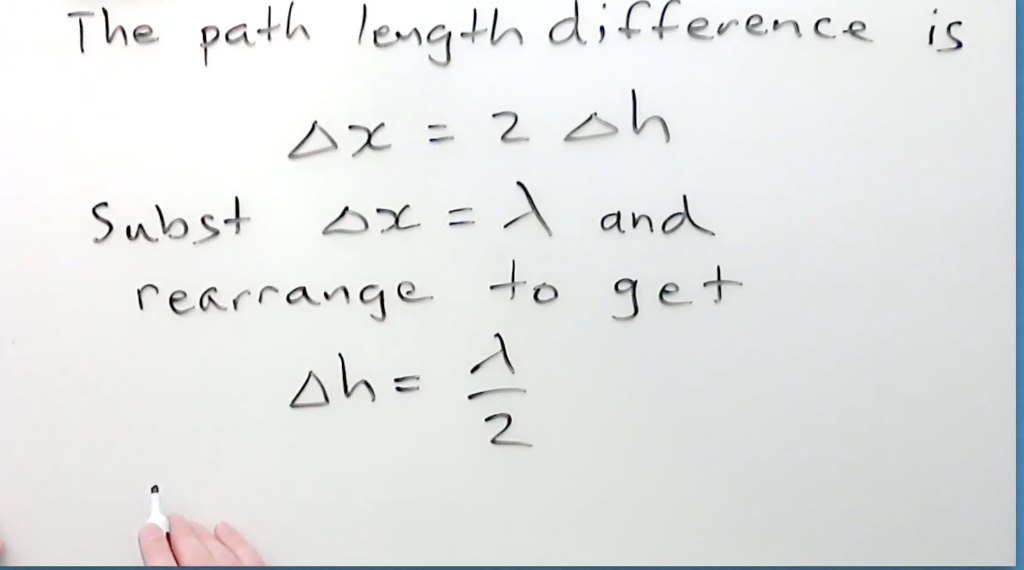 The path length difference is
Δx = 2 Δh
Subst Δx = λ and
rearrange to get
Δh = λ/2